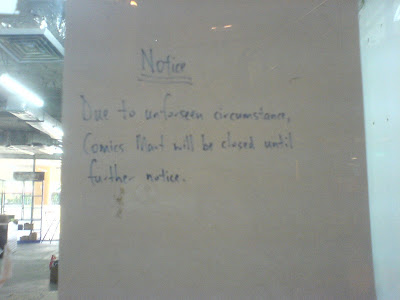 Notice
Due to unforseen circumstance,
Comics Mart will be closed until
further notice.